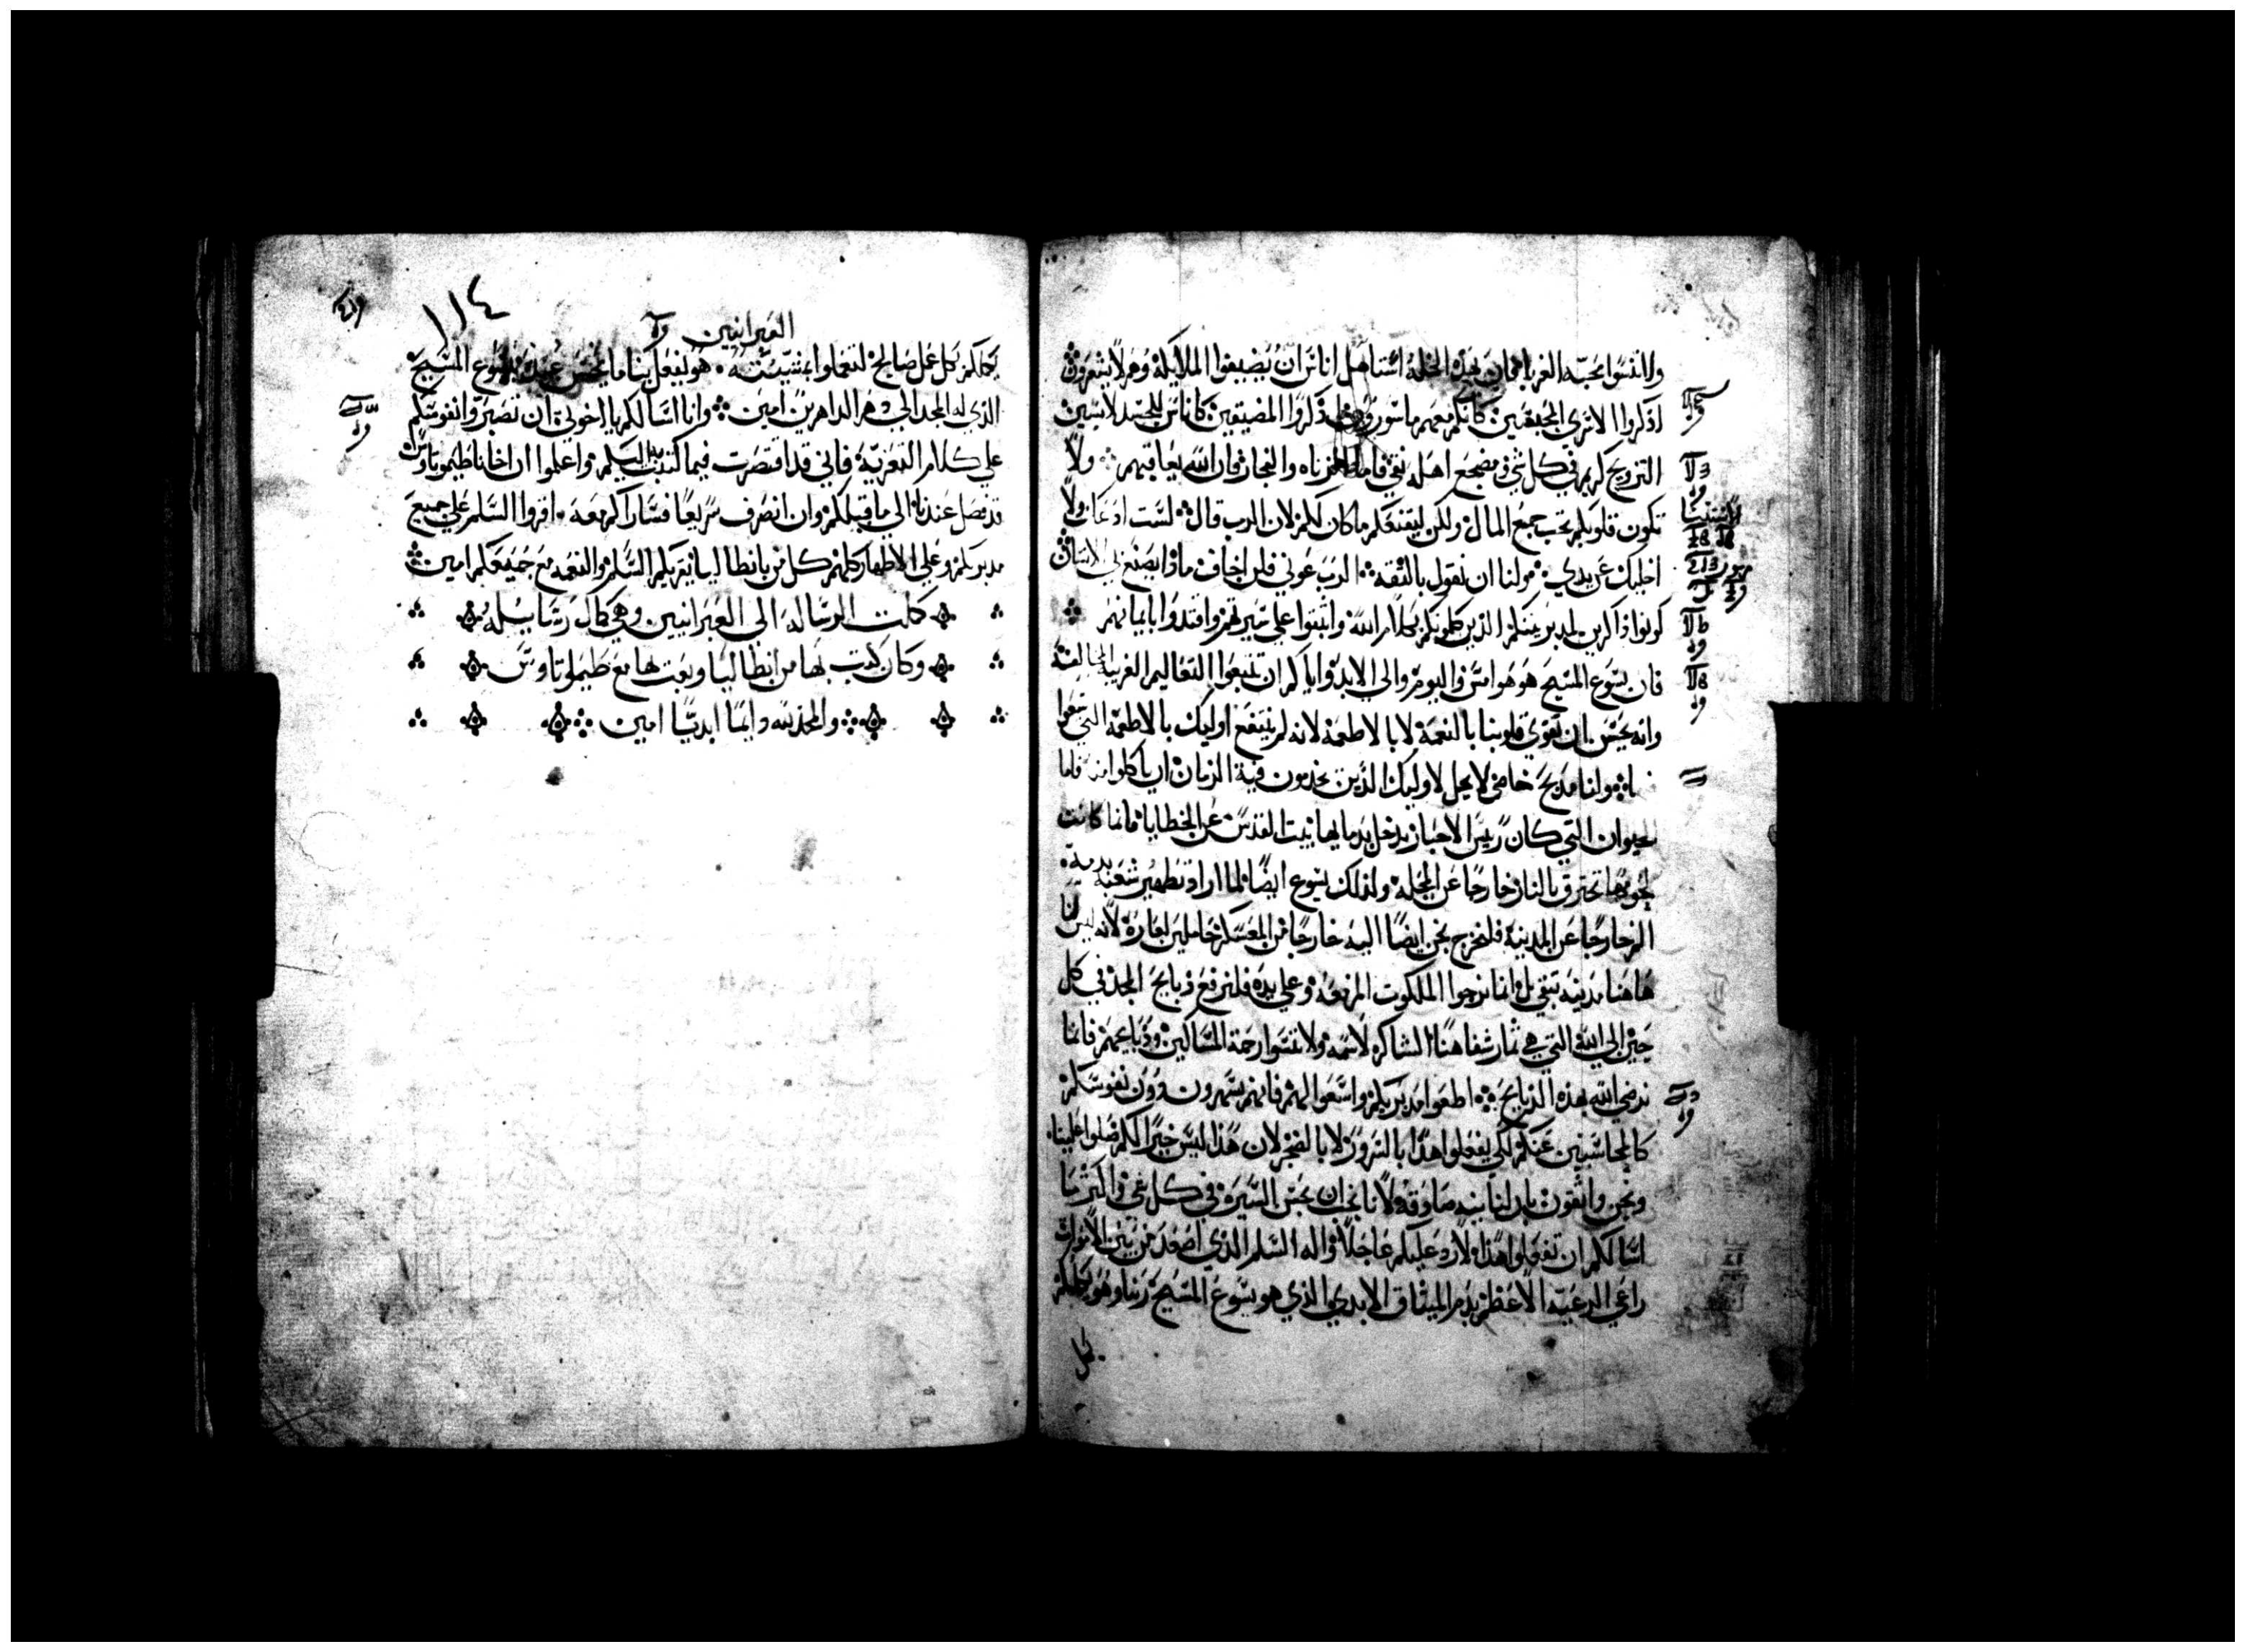 ولا تنسوا محبه الغربا فان بهذه الخله استاهل اناس ان يضيفوا الملايكة وهم لا يشعرون
اذكروا الاسري المحبوسين كانكم معهم ماسورون اذكروا المضيقين كاناس للجسد لابسين
التزويج كريم في كل شي ومضجع اهله نقي فاما الزناه والفجار فان الله يعاقبهم ولا
تكون قلوبكم تحب جمع المال ولكن ليقنعكم ما كان لكم لان الرب قال لست ادعك ولا
اخليك من يدي ولنا ان نقول بالثقه الرب عوني فلن اخاف ماذا يصنع بي الانسان
كونوا ذاكرين لمدبرينكم الذين كلموكم بكلام الله واثبتوا علي سيرتهم واقتدوا بايمانهم
فان يسوع المسيح هو هو امس واليوم والي الابد واياكم ان تتبعوا التعاليم الغريبه المخالفة
وانه يحسن ان نقوي قلوبنا بالنعمة لا بالاطعمة لانه لم ينتفع اوليك بالاطعمه التي تبعوا
ولنا مذبح خاص لا يحل لاوليك الذين يخدمون قبة الزمان ان ياكلوا منه فاما
الحيوان التي كان رييس الاحبار يدخل بدمايها بيت القدس عن الخطايا فانما كانت
لحومها تحترق بالنار خارجا عن المحله ولذلك يسوع ايضا لما اراد تطهير شعبه بدمه
الم خارجا عن المدينة فلنخرج نحن ايضا اليه خارجا من المعسكر حاملين لعاره لانه ليس لنا
هاهنا مدينه تبقي بل انما نرجوا الملكوت المزمعه وعلي يده فلنرفع ذبايح المجد في كل
حين الي الله التي هي ثمار شفاهنا الشاكره لاسمه ولا تنسوا رحمة المساكين وذبايحهم فانما
نرضي الله بهذه الذبايح اطيعوا مدبريكم واسمعوا لهم فانهم يسهرون دون نفوسكم
كالمحاسبين عنكم لكي يفعلوا هذا بالسرور لا بالضجر لان هذا ليس خيرا لكم صلوا علينا
ونحن واثقون بان لنا نيه صادقه لانا نحب ان نحسن السيرة في كل شي واكثر ما
اسالكم ان تفعلوا هذا لارد عليكم عاجلا واله السلم الذي اصعد من بين الاموات
راعي الرعيه الاعظم بدم الميثاق الابدي الذي هو يسوع المسيح ربنا وهو يكملكم
بكل
العبرانيين
١١٤
يكملكم بكل عمل صالح لتعملوا بمشيته هو ليفعل بنا ما يحسن عنده بيسوع المسيح
الذي له المجد الي دهر الداهرين امين وانا اسالكم يا اخوتي ان تصبروا نفوسكم
علي كلام التعزيه فاني قد اقتصرت فيما كتبت به اليكم واعلموا ان اخانا طيموتاوس
قد فصل عندنا الي ما قبلكم وان انصرف سريعا فساراكم معه اقروا السلم علي جميع
مدبريكم وعلي الاطهار كلهم كل من بانطاليا يقريكم السلم والنعمه مع جميعكم امين
كملت الرساله الي العبرانيين وهي كمال رسايله
وكان كتب بها من انطاليا وبعث بها مع طيموتاوس
والمجد لله دايما ابديا امين